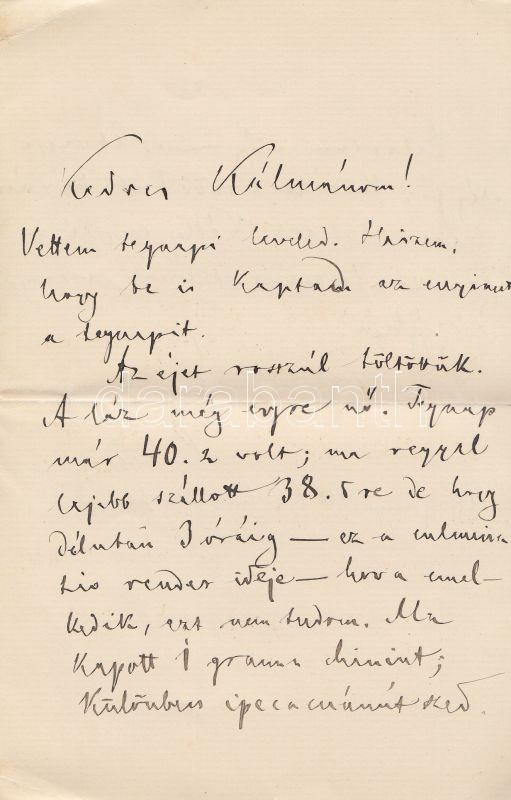 Kedves Kálmánom!
Vettem tegnapi leveled. Hiszem,
hogy te is kaptad az enyimet
a tegnapit.
Az éjet rosszúl töltöttük.
A láz még egyre nő. Tegnap
már 40.2 volt; ma reggel
lejebb szállott 38.5 re de hogy
délután 3 óráig — ez a culmina
tio rendes ideje — hova emel-
kedik, azt nem tudom. Ma
kapott 1 gramm chinint;
Különben ipecacuánát szed.
darabanth